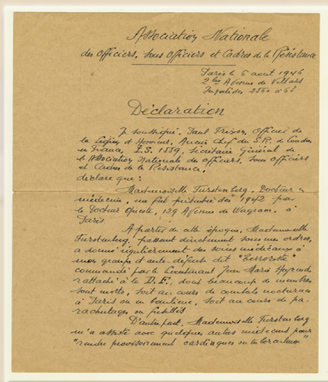 Association Nationale
des Officiers, Sous Officiers et Cadres de la Résistance
Paris le 6 août 1946
2 Avenue de Villars
Déclaration
Je soussigné, Paul Officier de
la Légion d'Honneur, Ancien Chef du S.R. de Londres
en France, Secrétaire Général de
l'Association Nationale des Officiers, Sous Officiers
et Cadres de la Résistance,
déclare que :
Mademoiselle Furstenberg, Docteur en
médecine, me fut présentée dès 1942 par
le Docteur 129 Avenue de Wagram, à
Paris
A partir de cette époque, Mademoiselle
Furstenberg, passant directement sous mes ordres,
a donné régulièrement des soins médicaux à
mon groupe et aux débuts dit "terroriste"
commandé par le Lieutenant Jean Mars
rattaché à le D.E. dont beaucoup de membres
sont morts, soit au cours de combats nocturnes
à Paris ou en banlieue, soit au cours de
parachutages en
D'autre part, Mademoiselle Furstenberg
m'a assisté avec quelques autres médecins pour
"rendre provisoirement cardiaques ou tuberculeux"